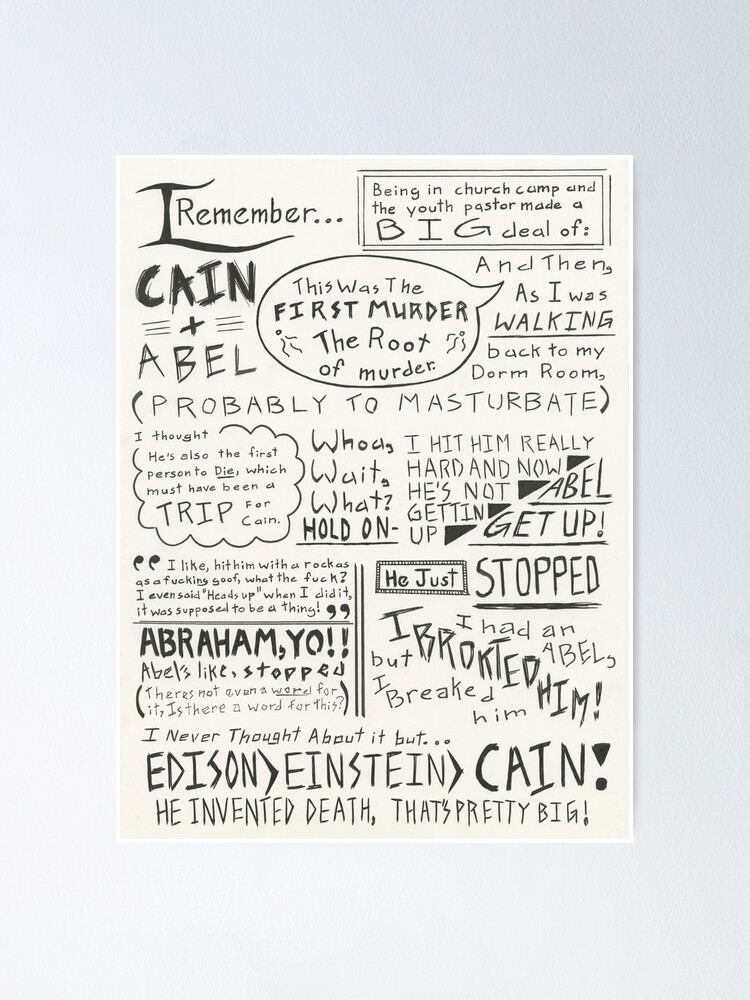 I Remember...
Being in church camp and
the youth pastor made a
BIG deal of:
CAIN
+
ABEL
This Was The
FIRST MURDER
The Root
of murder.
And Then,
As I was
WALKING
back to my
Dorm Room,
(PROBABLY TO MASTURBATE)
I thought
He's also the first
person to Die, which
must have been a
TRIP For
Cain.
Whoa,
Wait,
What?
HOLD ON-
I HIT HIM REALLY
HARD AND NOW
HE'S NOT
GETTIN
UP
ABEL
GET UP!
"I like, hit him with a rock as
as a fucking goof, what the fuck?
I even said "Heads up" when I did it,
it was supposed to be a thing!"
ABRAHAM, YO!!
Abel's like, stopped
(Theres not even a word for
it, Is there a word for this?)
He Just STOPPED
I had an
ABEL,
but
I BROKTED
HIM!
I Breaked
him
I Never Thought About it but...
EDISON> EINSTEIN> CAIN!
HE INVENTED DEATH, THAT'S PRETTY BIG!